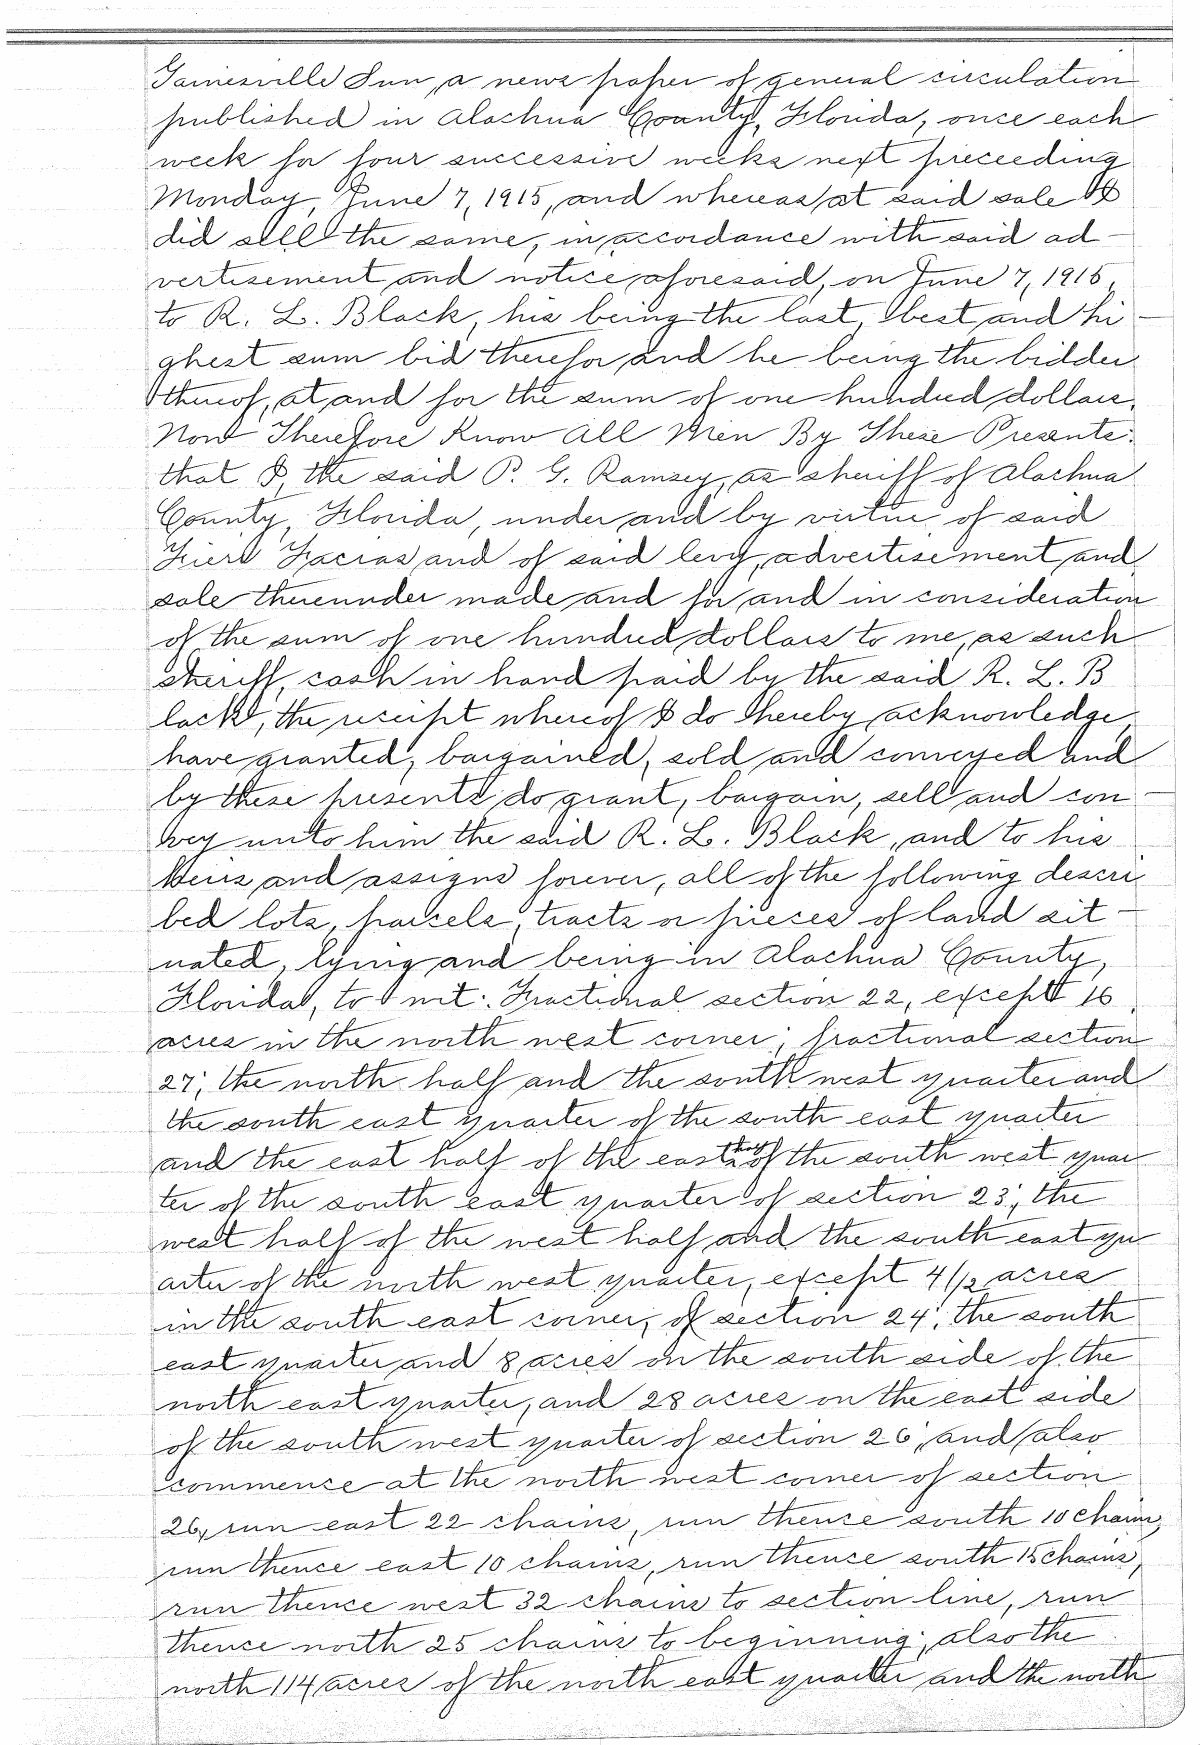 Gainesville Sun, a news paper of general circulation
published in Alachua County, Florida, once each
week for four successive weeks next preceeding
Monday, June 7, 1915, and whereas at said sale I
did sell the same, in accordance with said ad-
vertisement and notice aforesaid, on June 7, 1915,
to R. L. Black, his being the last, best and hi-
ghest sum bid therefor and he being the bidder
thereof, at and for the sum of one hundred dollars.
Now Therefore Know All Men By These Presents:
that I, the said P. G. Ramsey, as sheriff of Alachua
County, Florida, under and by virtue of said
Fieri Facias and of said levy, advertisement and
sale thereunder made and for and in consideration
of the sum of one hundred dollars to me, as such
sheriff, cash in hand paid by the said R. L. B
lack, the receipt whereof I do hereby acknowledge,
have granted, bargained, sold and conveyed and
by these presents do grant, bargain, sell and con-
vey unto him the said R. L. Black, and to his
heirs and assigns forever, all of the following descri
bed lots, parcels, tracts or pieces of land sit-
uated, lying and being in Alachua County,
Florida, to wit: Fractional section 22, except 16
acres in the north west corner; fractional section
27; the north half and the south west quarter and
the south east quarter of the south east quarter
and the east half of the east half of the south west quar
ter of the south east quarter of section 23; the
west half of the west half and the south east qu
arter of the north west quarter, except 4 1/2 acres
in the south east corner, of section 24; the south
east quarter and 8 acres on the south side of the
north east quarter, and 28 acres on the east side
of the south west quarter of section 26, and also
commence at the north west corner of section
26, run east 22 chains, run thence south 10 chains,
run thence east 10 chains, run thence south 15 chains,
run thence west 32 chains to section line, run
thence north 25 chains to beginning; also the
north 114 acres of the north east quarter and the north